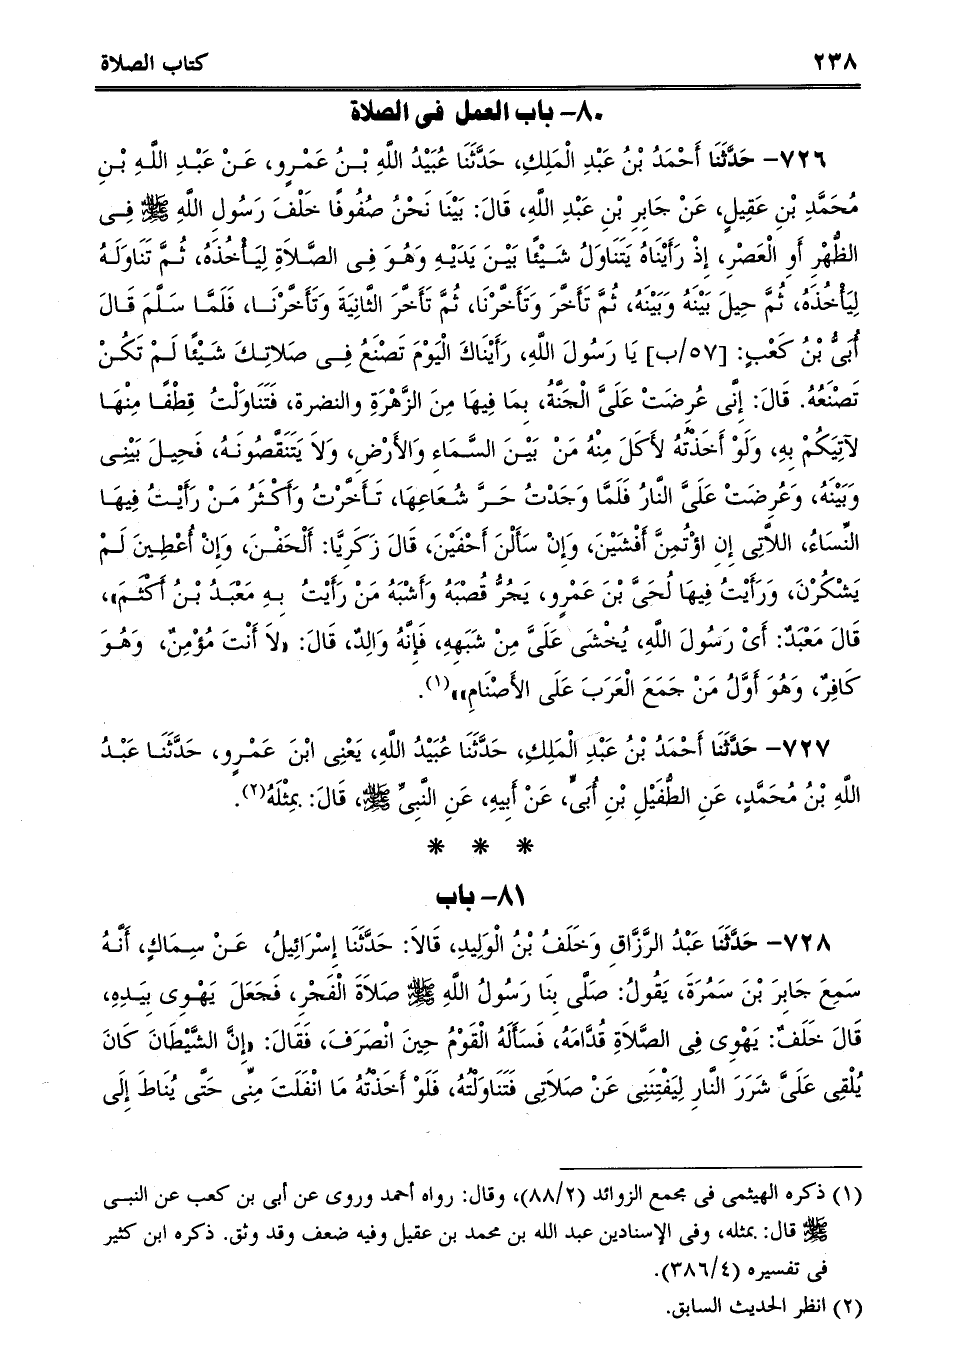 ٢٣٨ كتاب الصلاة
٨٠- باب العمل فى الصلاة
٧٢٦- حَدَّثَنَا أَحْمَدُ بْنُ عَبْدِ الْمَلِكِ، حَدَّثَنَا عُبَيْدُ اللَّهِ بْنُ عَمْرٍو، عَنْ عَبْدِ اللَّهِ بْنِ
مُحَمَّدِ بْنِ عَقِيلٍ، عَنْ جَابِرِ بْنِ عَبْدِ اللَّهِ، قَالَ: بَيْنَا نَحْنُ صُفُوفًا خَلْفَ رَسُولِ اللَّهِ ﷺ فِى
الظُّهْرِ أَوِ الْعَصْرِ، إِذْ رَأَيْنَاهُ يَتَنَاوَلُ شَيْئًا بَيْنَ يَدَيْهِ وَهُوَ فِى الصَّلاَةِ لِيَأْخُذَهُ، ثُمَّ تَنَاوَلَهُ
لِيَأْخُذَهُ، ثُمَّ حِيلَ بَيْنَهُ وَبَيْنَهُ، ثُمَّ تَأَخَّرَ وَتَأَخَّرْنَا، ثُمَّ تَأَخَّرَ الثَّانِيَةَ وَتَأَخَّرْنَا، فَلَمَّا سَلَّمَ قَالَ
أُبَىُّ بْنُ كَعْبٍ: [٥٧/ب] يَا رَسُولَ اللَّهِ، رَأَيْنَاكَ الْيَوْمَ تَصْنَعُ فِى صَلاتِكَ شَيْئًا لَمْ تَكُنْ
تَصْنَعُهُ. قَالَ: إِنِّى عُرِضَتْ عَلَىَّ الْجَنَّةُ، بِمَا فِيهَا مِنَ الزَّهْرَةِ والنضرة، فَتَنَاوَلْتُ قِطْفًا مِنْهَا
لآتِيَكُمْ بِهِ، وَلَوْ أَخَذْتُهُ لأَكَلَ مِنْهُ مَنْ بَيْنَ السَّمَاءِ وَالأَرْضِ، وَلاَ يَتَنَقَّصُونَهُ، فَحِيلَ بَيْنِى
وَبَيْنَهُ، وَعُرِضَتْ عَلَىَّ النَّارُ فَلَمَّا وَجَدْتُ حَرَّ شُعَاعِهَا، تَأَخَّرْتُ وَأَكْثَرُ مَنْ رَأَيْتُ فِيهَا
النِّسَاءُ، اللاَّتِى إِنِ اؤْتُمِنَّ أَفْشَيْنَ، وَإِنْ سَأَلْنَ أَحْفَيْنَ، قَالَ زَكَرِيَّا: أَلْحَفْنَ، وَإِنْ أُعْطِينَ لَمْ
يَشْكُرْنَ، وَرَأَيْتُ فِيهَا لُحَىَّ بْنَ عَمْرٍو، يَجُرُّ قُصْبَهُ وَأَشْبَهُ مَنْ رَأَيْتُ بِهِ مَعْبَدُ بْنُ أَكْثَمَ»،
قَالَ مَعْبَدٌ: أَىْ رَسُولَ اللَّهِ، يُخْشَى عَلَىَّ مِنْ شَبَهِهِ، فَإِنَّهُ وَالِدٌ، قَالَ: «لاَ أَنْتَ مُؤْمِنٌ، وَهُوَ
كَافِرٌ، وَهُوَ أَوَّلُ مَنْ جَمَعَ الْعَرَبَ عَلَى الأَصْنَامِ»»(١).
٧٢٧- حَدَّثَنَا أَحْمَدُ بْنُ عَبْدِ الْمَلِكِ، حَدَّثَنَا عُبَيْدُ اللَّهِ، يَعْنِى ابْنَ عَمْرٍو، حَدَّثَنَا عَبْدُ
اللَّهِ بْنُ مُحَمَّدٍ، عَنِ الطُّفَيْلِ بْنِ أُبَىٍّ، عَنْ أَبِيهِ، عَنِ النَّبِىِّ ﷺ، قَالَ: بِمِثْلَهُ(٢).
* * *
٨١- باب
٧٢٨- حَدَّثَنَا عَبْدُ الرَّزَّاقِ وَخَلَفُ بْنُ الْوَلِيدِ، قَالاَ: حَدَّثَنَا إِسْرَائِيلُ، عَنْ سِمَاكٍ، أَنَّهُ
سَمِعَ جَابِرَ بْنَ سَمُرَةَ، يَقُولُ: صَلَّى بِنَا رَسُولُ اللَّهِ ﷺ صَلاَةَ الْفَجْرِ، فَجَعَلَ يَهْوِى بِيَدِهِ،
قَالَ خَلَفٌ: يَهْوِى فِى الصَّلاَةِ قُدَّامَهُ، فَسَأَلَهُ الْقَوْمُ حِينَ انْصَرَفَ، فَقَالَ: «إِنَّ الشَّيْطَانَ كَانَ
يُلْقِى عَلَىَّ شَرَرَ النَّارِ لِيَفْتِنَنِى عَنْ صَلاَتِى فَتَنَاوَلْتُهُ، فَلَوْ أَخَذْتُهُ مَا انْفَلَتَ مِنِّى حَتَّى يُنَاطَ إِلَى
(١) ذكره الهيثمى فى مجمع الزوائد (٨٨/٢)، وقال: رواه أحمد وروى عن أبى بن كعب عن النبى
ﷺ قال: بمثله، وفى الإسنادين عبد الله بن محمد بن عقيل وفيه ضعف وقد وثق. ذكره ابن كثير
فى تفسيره (٣٨٦/٤).
(٢) انظر الحديث السابق.